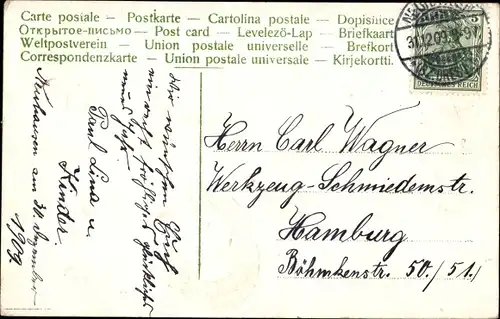 Carte postale – Postkarte – Cartolina postale – Dopisnice
Открытое-письмо – Post card – Levelező-Lap – Briefkaart
Weltpostverein – Union postale universelle – Brefkort
Correspondenzkarte – Union postale universale – Kirjekortti.
5
31.12.09. 8-9V.
DEUTSCHES REICH
Herrn Carl Wagner
Werkzeug-Schmiedemstr.
Hamburg
Böhmkenstr. 50./51./
Wir wünschen Euch
ein recht fröhliches glückliches
neues Jahr.
Paul Lina u.
Kinder
Neuhausen am 30. Dezember
1909